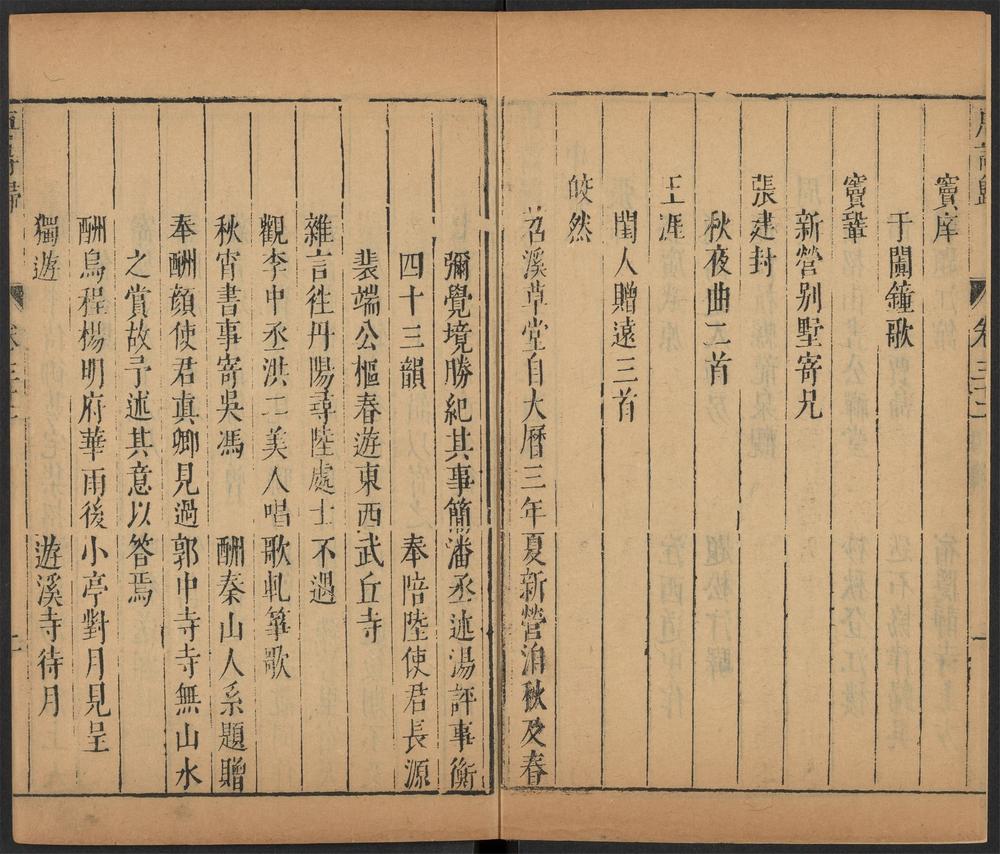 竇庠
于闐鐘歌
竇鞏
新營别墅寄兄
張建封
秋夜曲二首
王涯
閨人贈遠三首
皎然
苕溪草堂自大曆三年夏新營洎秋及春
彌覺境勝紀其事簡潘丞述湯評事衡
四十三韻 奉陪陸使君長源
裴端公樞春遊東西武丘寺
雜言往丹陽尋陸處士不遇
觀李中丞洪二美人唱歌軋箏歌
秋宵書事寄吳馮 酬秦山人系題贈
奉酬顔使君真卿見過郭中寺寺無山水
之賞故予述其意以答焉
酬烏程楊明府華雨後小亭對月見呈
獨遊 遊溪寺待月